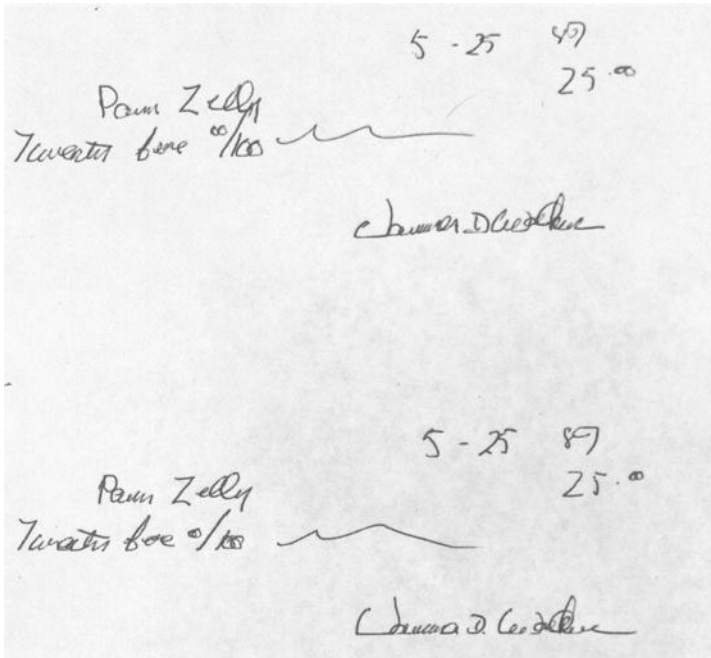 5 - 25 87
25.00
Pam Zelly
Twenty five 00/100
D.
5 - 25 87
25.00
Pam Zelly
Twenty five 00/100
D.